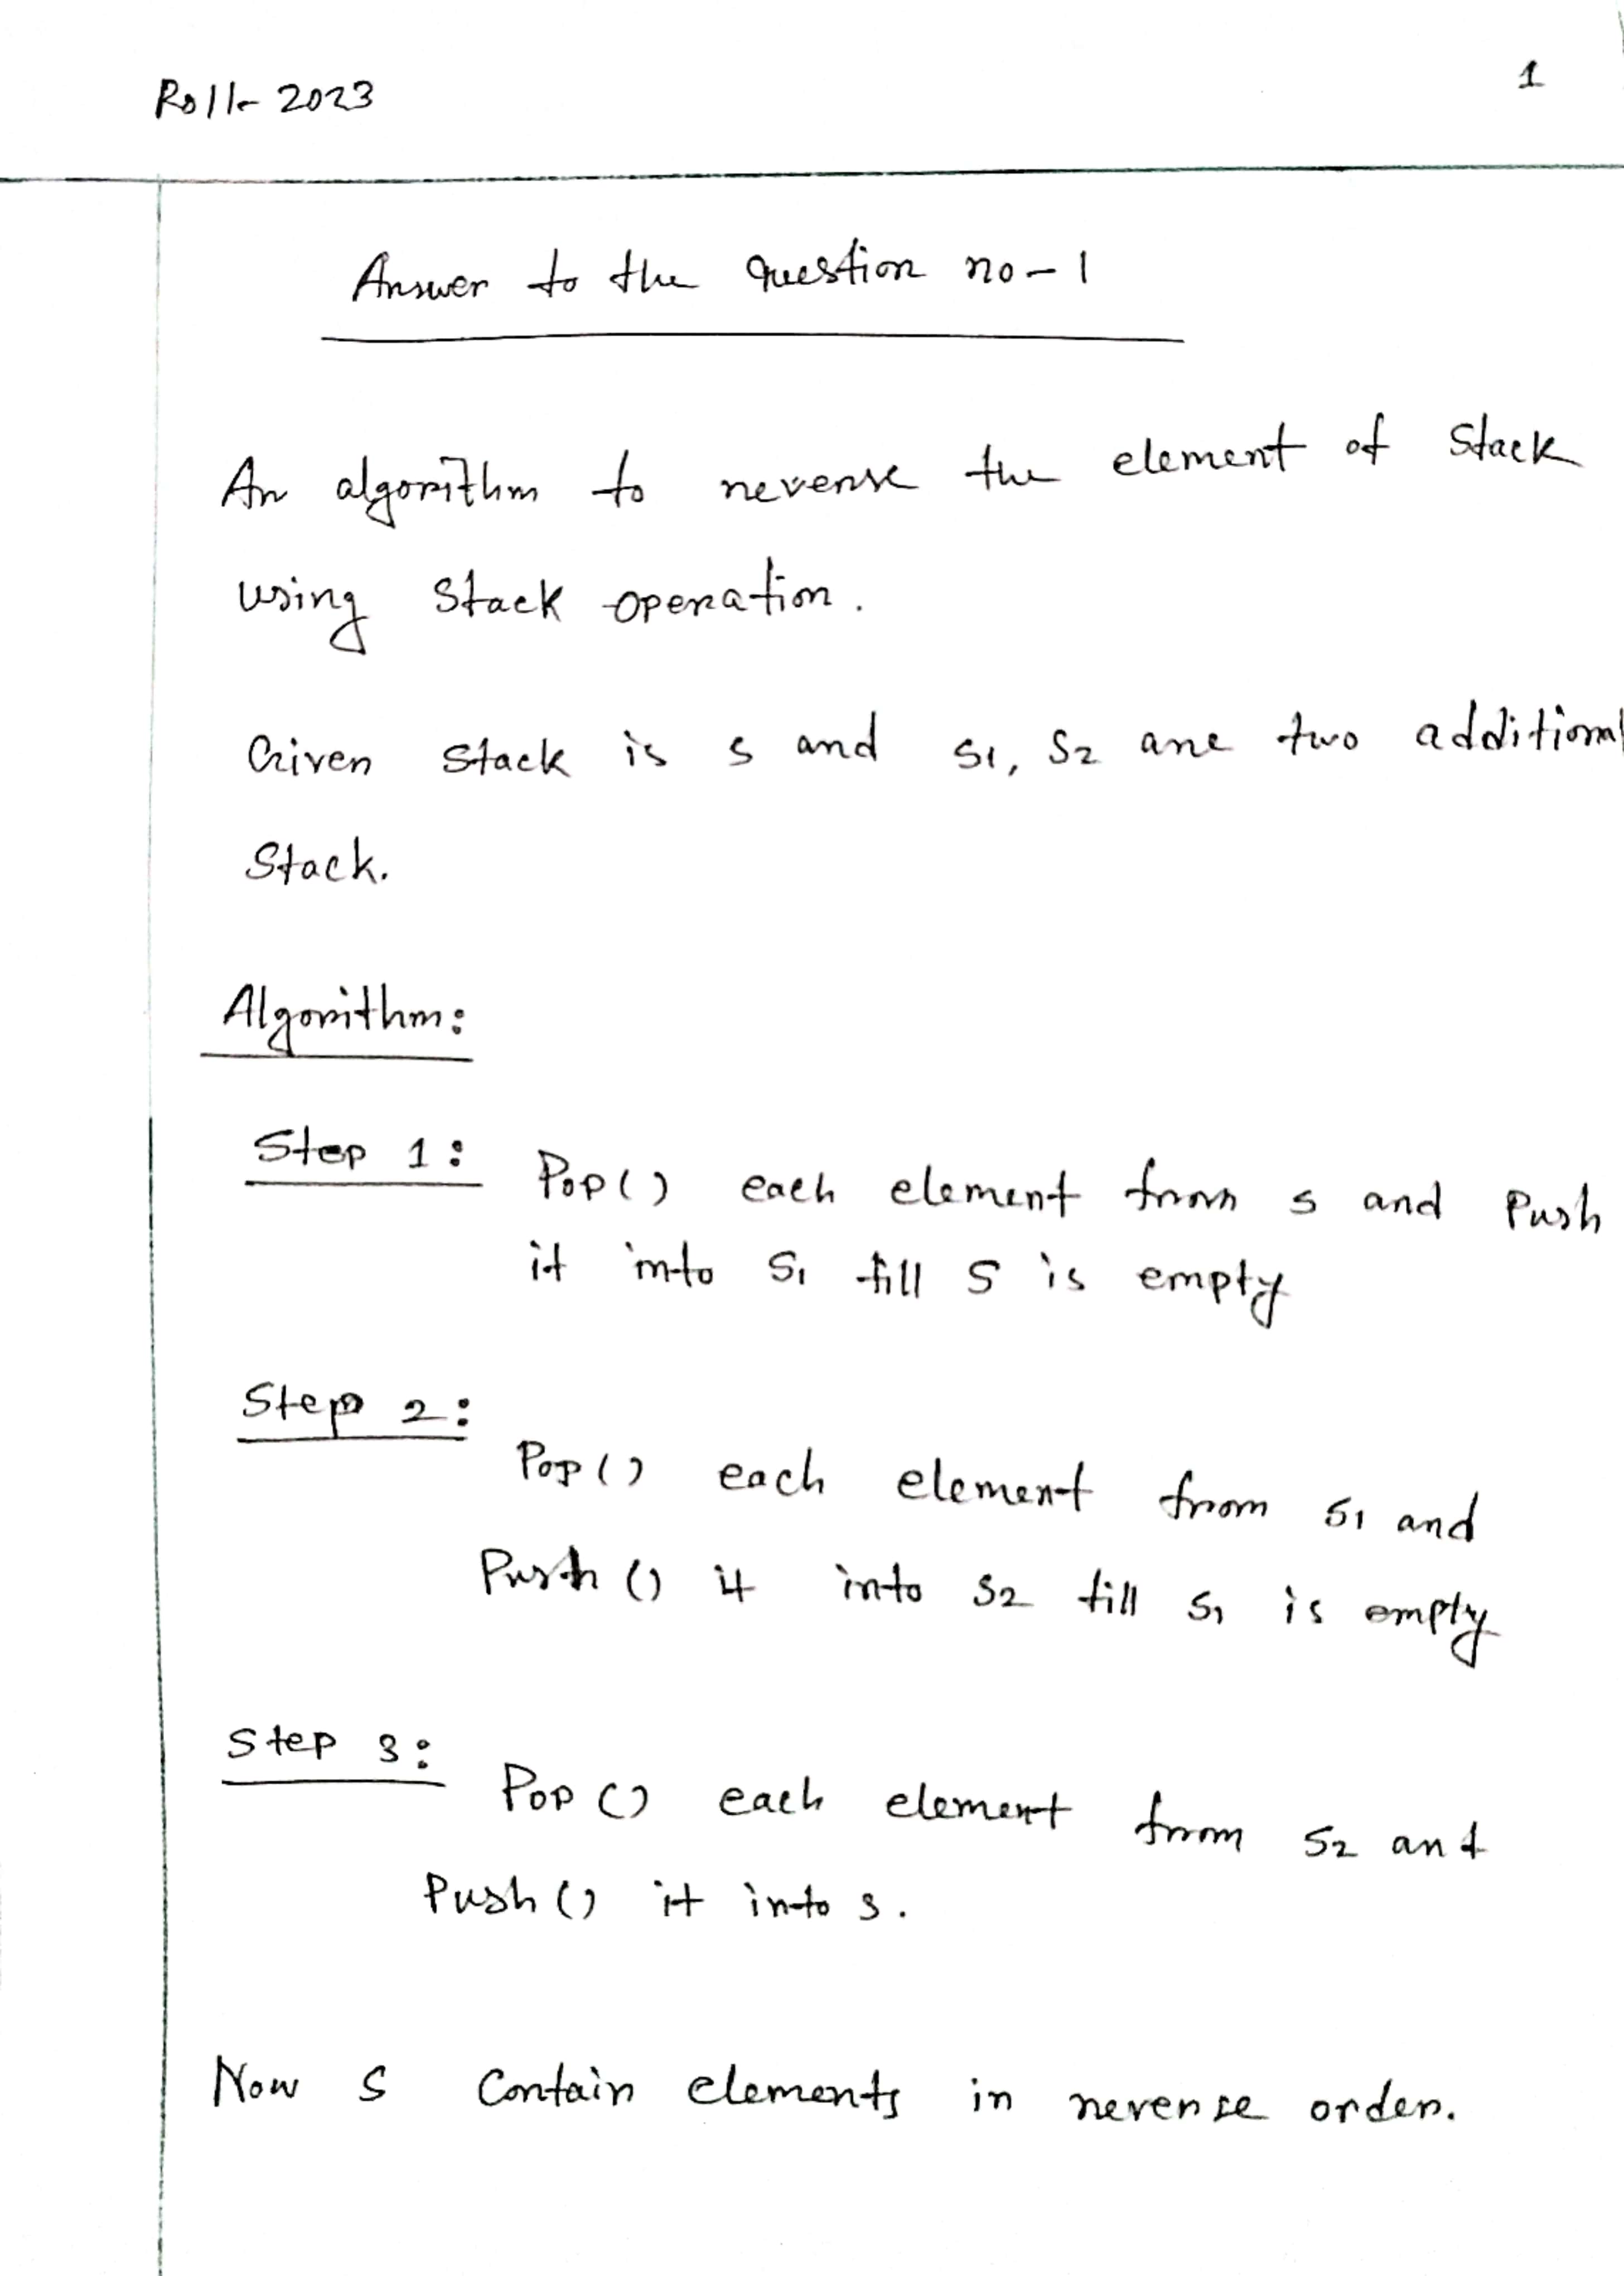 Roll- 2023
1
Answer to the question no-1
An algorithm to reverse the element of Stack
using Stack operation.
Given stack is s and s1, s2 are two additional
Stack.
Algorithm:
Step 1: Pop() each element from s and Push
it into S1 till S is empty
Step 2:
Pop() each element from s1 and
Push () it into s2 till s1 is empty
Step 3:
Pop () each element from s2 and
Push () it into s.
Now S Contain elements in reverse order.